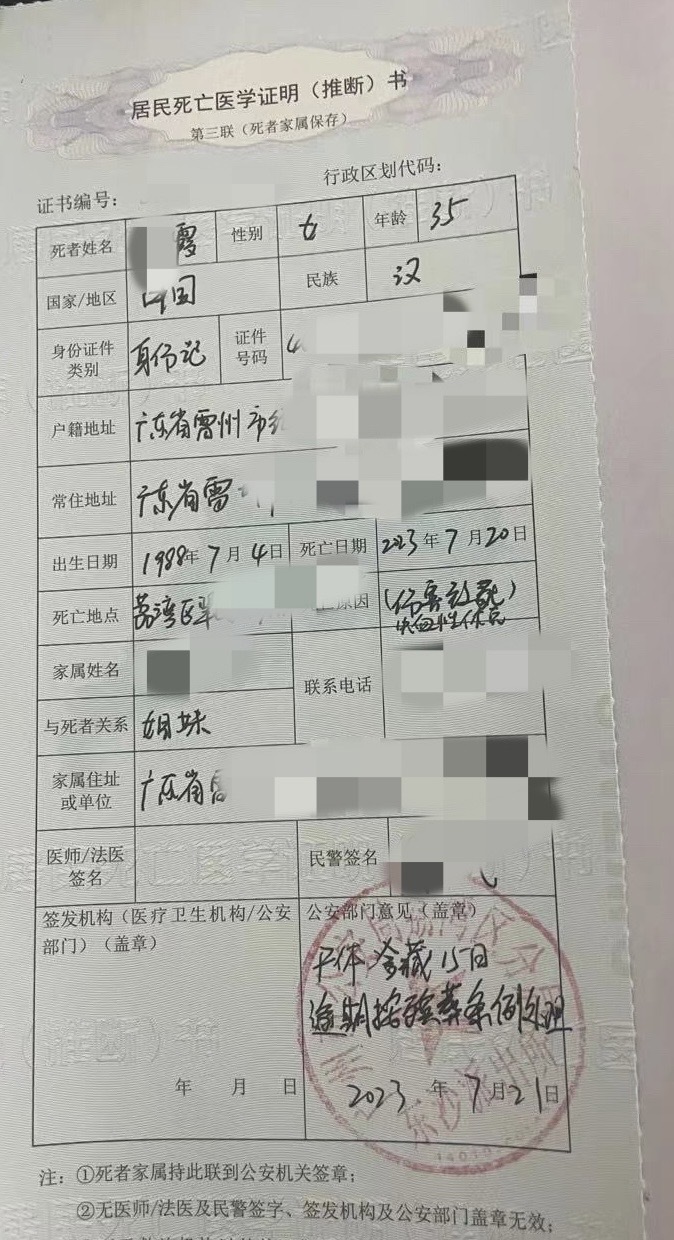 居民死亡医学证明（推断）书
第三联（死者家属保存）
行政区划代码：
证书编号：
死者姓名 霞 性别 女 年龄 35
国家/地区 中国 民族 汉
身份证件类别 身份证 证件号码 4
户籍地址 广东省雷州市
常住地址 广东省雷
出生日期 1988年7月4日 死亡日期 2023年7月20日
死亡地点 荔湾区 原因 (伤害致死)
失血性休克
家属姓名 联系电话
与死者关系 姐妹
家属住址或单位 广东省雷
医师/法医签名 民警签名
签发机构（医疗卫生机构/公安部门）（盖章） 公安部门意见（盖章）
尸体冷藏15日
逾期按殡葬条例处理
年 月 日 2023年7月21日
注：①死者家属持此联到公安机关签章；
②无医师/法医及民警签字、签发机构及公安部门盖章无效；